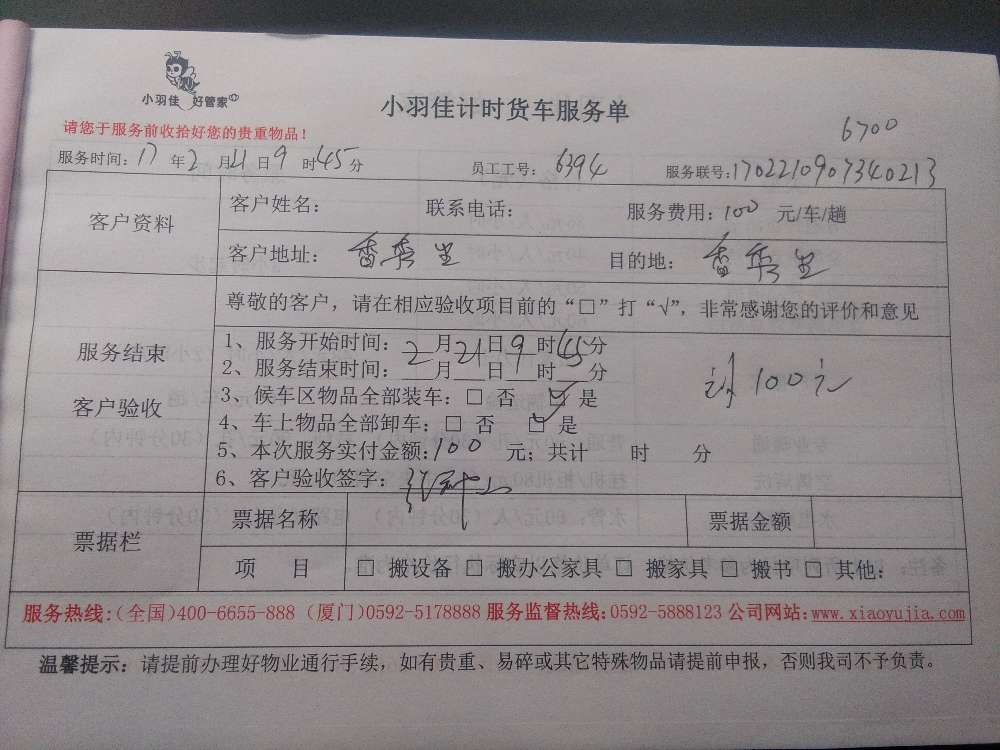 小羽佳 好管家
小羽佳计时货车服务单
6700
请您于服务前收拾好您的贵重物品!
服务时间:17年2月21日9时45分 员工工号:6394 服务联号:1702210907340213
客户资料
客户姓名: 联系电话: 服务费用:100 元/车/趟
客户地址: 香秀里 目的地: 香秀里
服务结束
客户验收
尊敬的客户,请在相应验收项目前的“□”打“√”,非常感谢您的评价和意见
1、服务开始时间:2月21日9时45分
2、服务结束时间:___月___日___时___分
3、候车区物品全部装车:□ 否 ☑ 是
4、车上物品全部卸车:□ 否 ☑ 是
5、本次服务实付金额:100 元;共计 时 分
6、客户验收签字:
100元
票据栏
票据名称 票据金额
项 目 □ 搬设备 □ 搬办公家具 □ 搬家具 □ 搬书 □ 其他:
服务热线:(全国)400-6655-888 (厦门)0592-5178888 服务监督热线:0592-5888123 公司网站:www.xiaoyujia.com
温馨提示:请提前办理好物业通行手续,如有贵重、易碎或其它特殊物品请提前申报,否则我司不予负责。